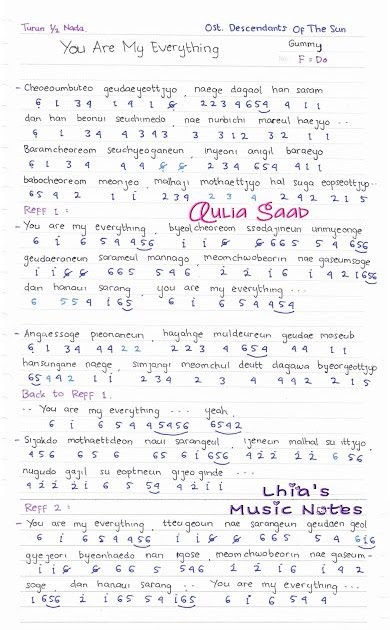 Turun 1/2 Nada.
Ost. Descendants Of The Sun
You Are My Everything
Gummy
F = Do
- Cheoeumbuteo geudaeyeottjyo, naege dagaol han saram
6 1 34 1 4 1 6 2 2 3 4 654 4 1 1
dan han beonui seuchimedo, nae nunbichi mareul haejyo ..
6 1 34 4 3 4 3 3 3 1 2 3 2 1 1
Baramcheoreom seuchyeoganeun, inyeoni anigil baraeyo
6 1 3 4 4 4 6 6 2 3 4 654 4 1 1
babocheoreom meonjeo, malhaji mothaettjyo hal suga eopseottjyo..
65 4 2 1 1 2 3 4 2 3 4 2 4 2 2 1 5
Reff 1 :
Aulia Saad
- You are my everything, byeolcheoreom ssodajineun unmyeonge
6 i 6 5 4 456 i i 6 6 6 6 5 5 4 656
geudaeraneun sarameul mannago, meomchwobeorin nae gaseumsoge
i i 6 6 6 6 5 5 4 6 2 2 i 6 i 4 2 i 656
dan hanaui sarang, you are my everything ...
6 5 5 4 i 65 6 i 6 5 4 454
- Angaessoge pieonaneun, hayahge muldeureun geudae moseub
6 1 3 4 4 4 2 2 2 2 3 4 654 4 4 1 1
hansungane naege, simjangi meomchul deutt dagawa byeorgeottjyo
65 4 4 2 1 1 2 3 4 2 3 4 4 4 2 2 1 5
Back to Reff 1.
.. You are my everything ... yeah,
6 i 6 5 4 45456 6542
- Sijakdo mothaettdeon naui sarangeul, ijeneun malhal su ittjyo,
4 5 6 6 5 6 6 5 6 i 656 4 2 2 2 2 6 56
nugudo gajil su eoptneun gijeoginde ...
4 2 2 2 i 6 5 54 4 2 i i
Lhia's
Music Notes
Reff 2 :
- You are my everything, tteugeoun nae sarangeun geudaen geol
6 i 6 5 4 456 i i 6 6 6 6 5 5 4 6i6
gyejeori byeonhaedo nan igose, meomchwobeorin nae gaseum-
i i 6 6 6 6 5 5 4 6 2 2 i 6 i 4 2
soge, dan hanaui sarang .. You are my everything ...
i 656 2 i 65 5 4 i65 6 i 6 5 4 4